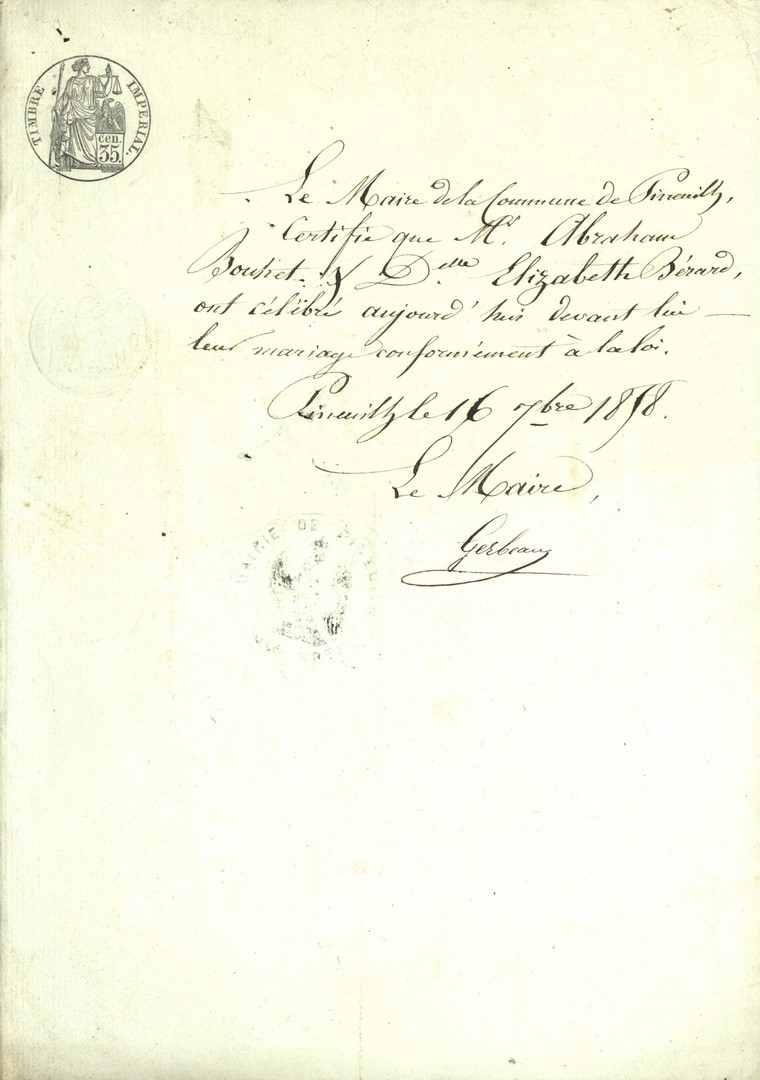 TIMBRE IMPERIAL.
cen.
35.
Le Maire de la Commune de Pineuilh,
Certifie que Mr. Abraham
Bouhet. & Delle. Elizabeth Bérard,
ont célébré aujourd'hui devant lui —
leur mariage conformément à la loi.
Pineuilh le 16 7bre 1858.
Le Maire,
Gerbeau
MAIRIE DE